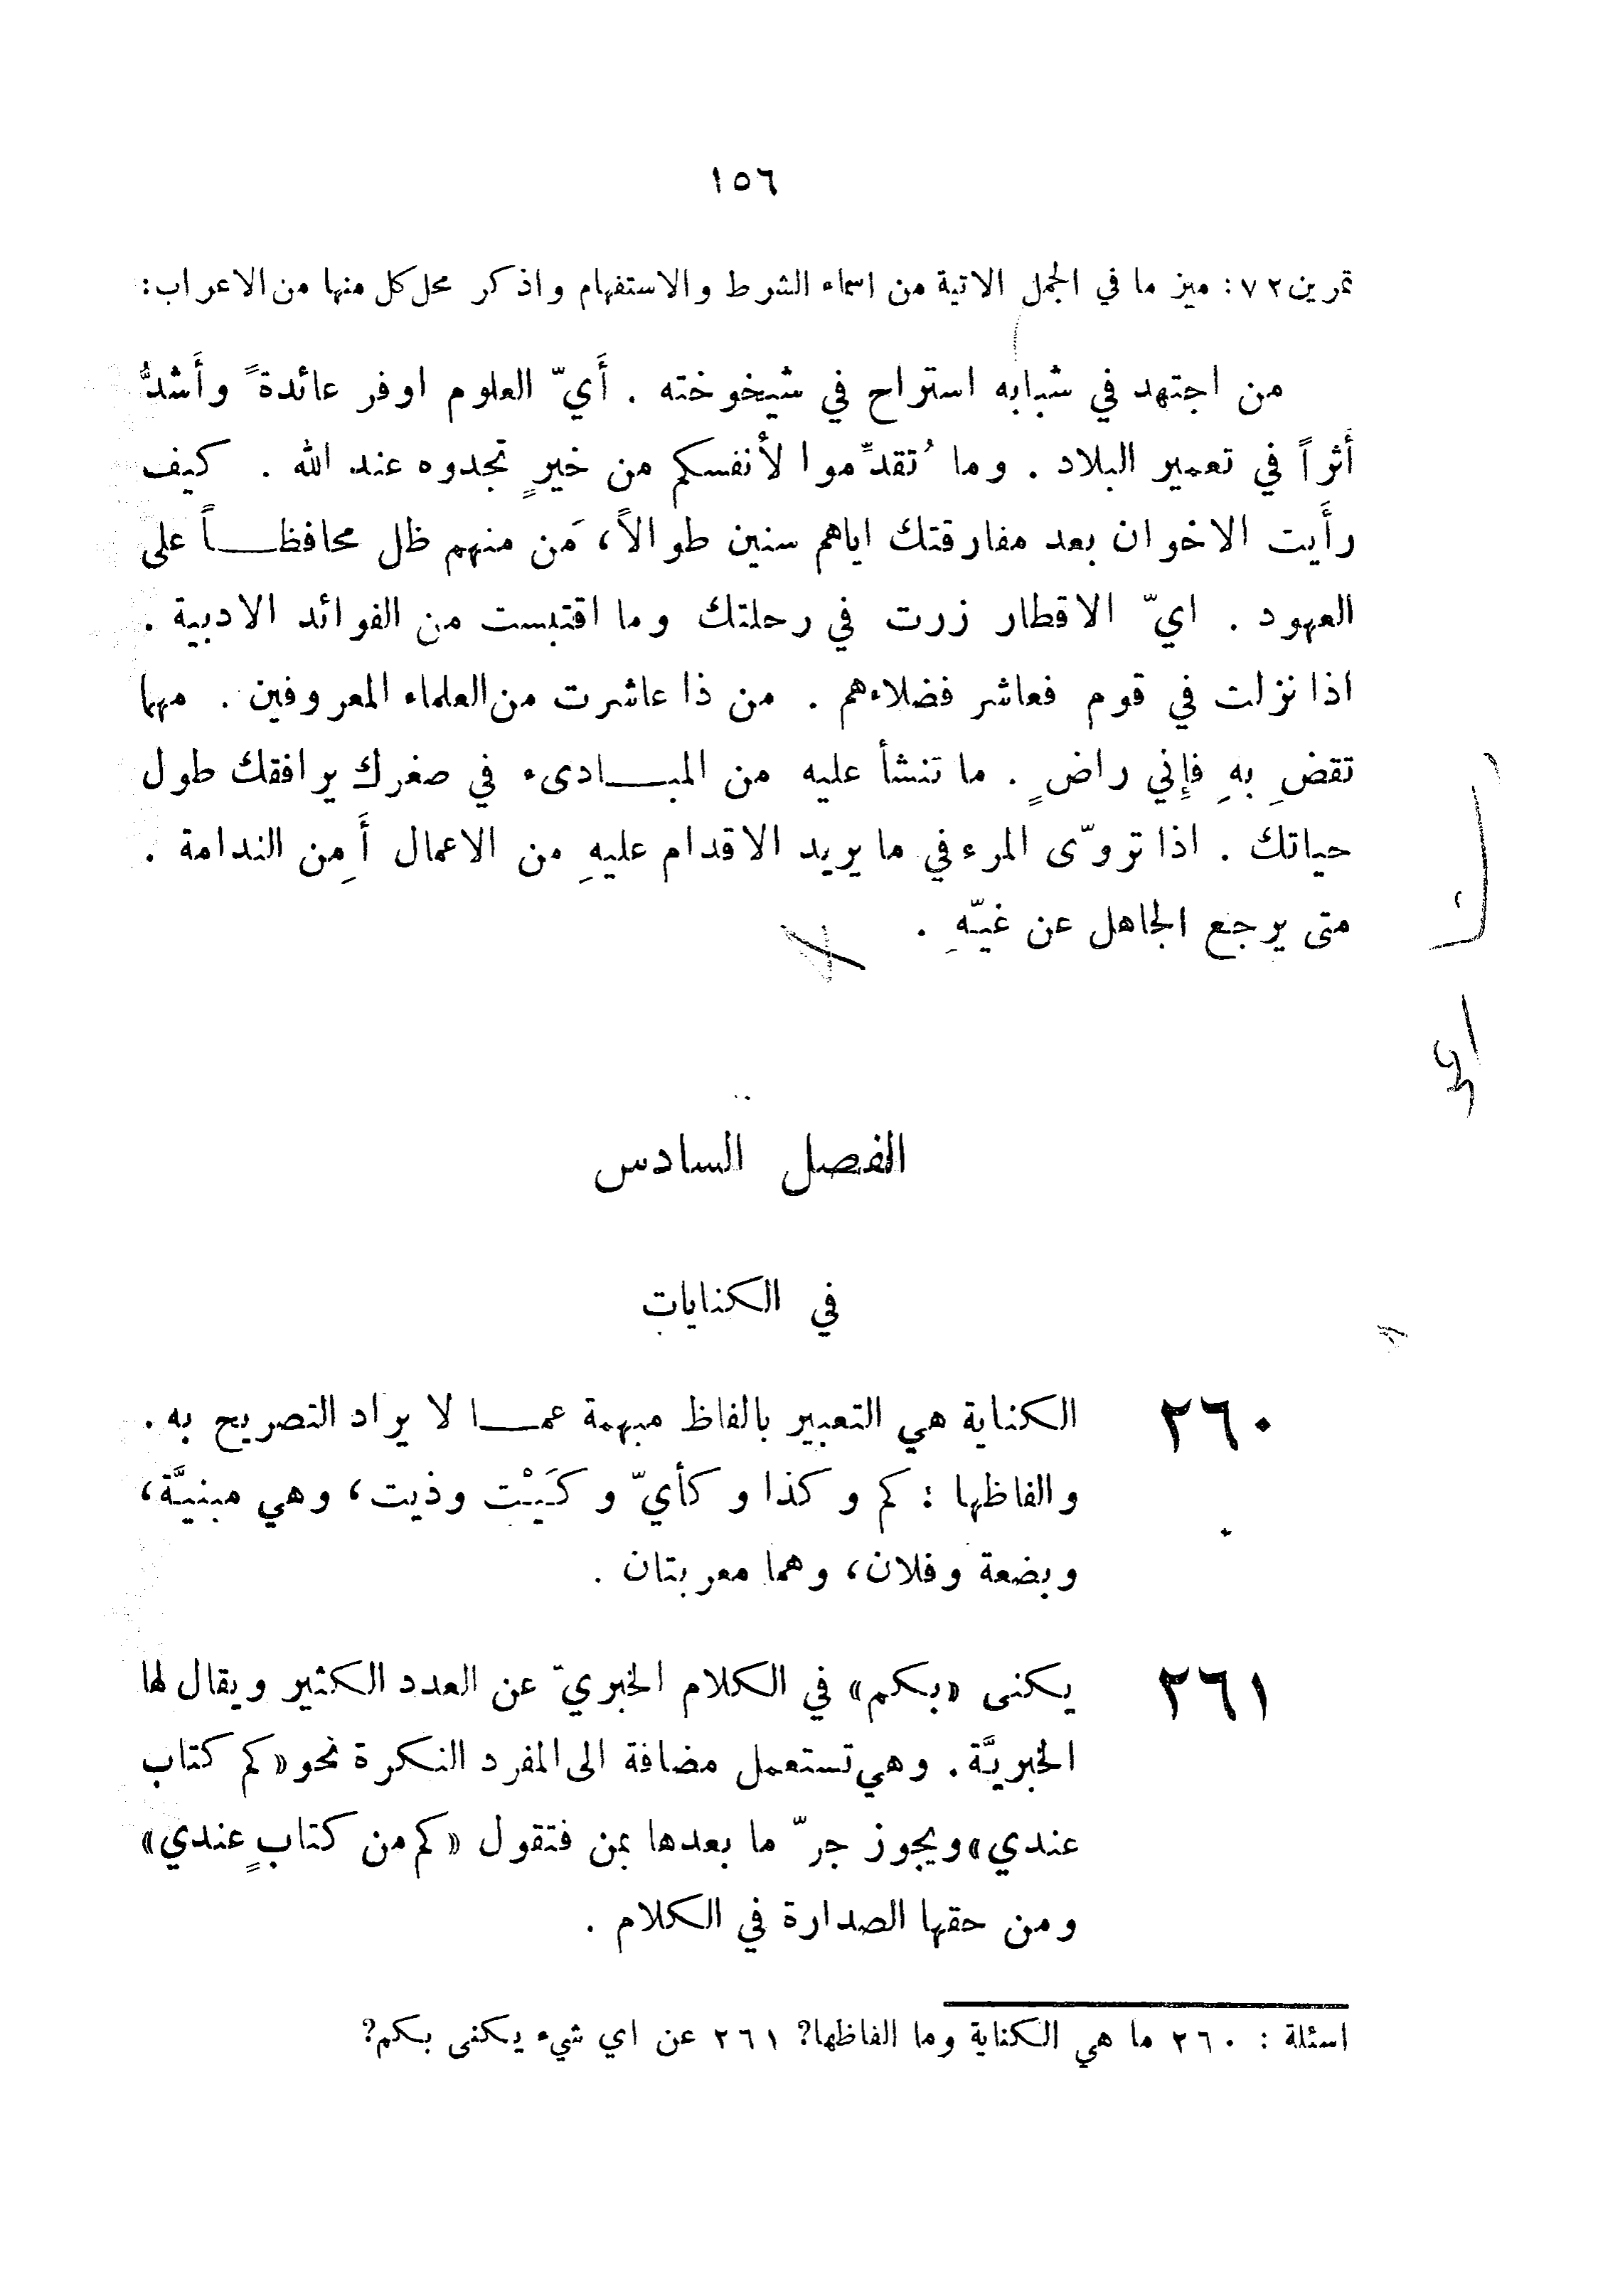 ١٥٦
تمرين ٧٢: ميز ما في الجمل الاتية من اسماء الشرط والاستفهام واذكر محل كل منها من الاعراب:
من اجتهد في شبابه استراح في شيخوخته . أَيّ العلوم اوفر عائدةً وأَشدُّ
أَثراً في تعمير البلاد . وما تُقدِّموا لأنفسكم من خيرٍ تجدوه عند الله . كيف
رأَيت الاخوان بعد مفارقتك اياهم سنين طوالاً، مَن منهم ظل محافظـاً على
العهود . ايّ الاقطار زرت في رحلتك وما اقتبست من الفوائد الادبية .
اذا نزلت في قوم فعاشر فضلاءهم . من ذا عاشرت من العلماء المعروفين . مهما
تقضِ بهِ فإِني راضٍ . ما تنشأ عليه من المبـادىء في صغرك يرافقك طول
حياتك . اذا تروّى المرء في ما يريد الاقدام عليهِ من الاعمال أَمِن الندامة .
متى يرجع الجاهل عن غيّهِ .
الفصل السادس
في الكنايات
٢٦٠ الكناية هي التعبير بالفاظ مبهمة عمـا لا يراد التصريح به .
والفاظها : كم وكذا وكأيّ وكَيْت وذيت، وهي مبنيَّة،
وبضعة وفلان، وهما معربتان .
٢٦١ يكنى «بكم» في الكلام الخبريّ عن العدد الكثير ويقال لها
الخبريَّة. وهي تستعمل مضافة الى المفرد النكرة نحو «كم كتاب
عندي» ويجوز جرّ ما بعدها بمن فتقول «كم من كتابٍ عندي»
ومن حقها الصدارة في الكلام .
اسئلة : ٢٦٠ ما هي الكناية وما الفاظها؟ ٢٦١ عن اي شيء يكنى بكم؟